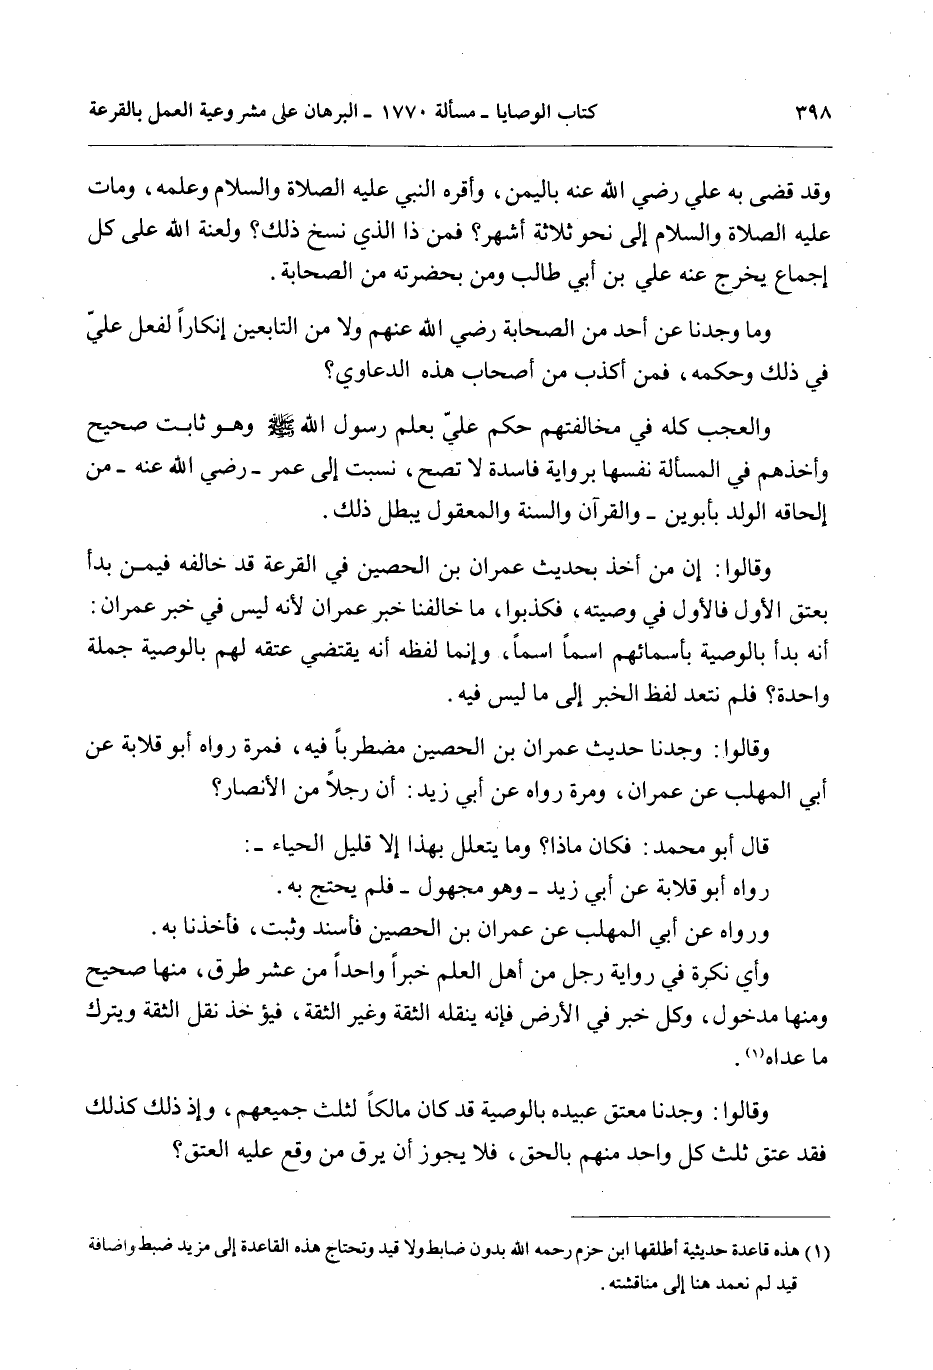 ٣٩٨ كتاب الوصايا ـ مسألة ١٧٧٠ ـ البرهان على مشروعية العمل بالقرعة
وقد قضى به علي رضي الله عنه باليمن، وأقره النبي عليه الصلاة والسلام وعلمه، ومات
عليه الصلاة والسلام إلى نحو ثلاثة أشهر؟ فمن ذا الذي نسخ ذلك؟ ولعنة الله على كل
إجماع يخرج عنه علي بن أبي طالب ومن بحضرته من الصحابة.
وما وجدنا عن أحد من الصحابة رضي الله عنهم ولا من التابعين إنكاراً لفعل عليّ
في ذلك وحكمه، فمن أكذب من أصحاب هذه الدعاوي؟
والعجب كله في مخالفتهم حكم عليّ بعلم رسول الله ﷺ وهو ثابت صحيح
وأخذهم في المسألة نفسها برواية فاسدة لا تصح، نسبت إلى عمر ـ رضي الله عنه ـ من
إلحاقه الولد بأبوين ـ والقرآن والسنة والمعقول يبطل ذلك.
وقالوا: إن من أخذ بحديث عمران بن الحصين في القرعة قد خالفه فيمن بدأ
بعتق الأول فالأول في وصيته، فكذبوا، ما خالفنا خبر عمران لأنه ليس في خبر عمران:
أنه بدأ بالوصية بأسمائهم اسماً اسماً، وإنما لفظه أنه يقتضي عتقه لهم بالوصية جملة
واحدة؟ فلم نتعد لفظ الخبر إلى ما ليس فيه.
وقالوا: وجدنا حديث عمران بن الحصين مضطرباً فيه، فمرة رواه أبو قلابة عن
أبي المهلب عن عمران، ومرة رواه عن أبي زيد: أن رجلاً من الأنصار؟
قال أبو محمد: فكان ماذا؟ وما يتعلل بهذا إلا قليل الحياء ـ:
رواه أبو قلابة عن أبي زيد ـ وهو مجهول ـ فلم يحتج به.
ورواه عن أبي المهلب عن عمران بن الحصين فأسند وثبت، فأخذنا به.
وأي نكرة في رواية رجل من أهل العلم خبراً واحداً من عشر طرق، منها صحيح
ومنها مدخول، وكل خبر في الأرض فإنه ينقله الثقة وغير الثقة، فيؤخذ نقل الثقة ويترك
ما عداه(١).
وقالوا: وجدنا معتق عبيده بالوصية قد كان مالكاً لثلث جميعهم، وإذ ذلك كذلك
فقد عتق ثلث كل واحد منهم بالحق، فلا يجوز أن يرق من وقع عليه العتق؟
(١) هذه قاعدة حديثية أطلقها ابن حزم رحمه الله بدون ضابط ولا قيد وتحتاج هذه القاعدة إلى مزيد ضبط واضافة
قيد لم نعمد هنا إلى مناقشته.